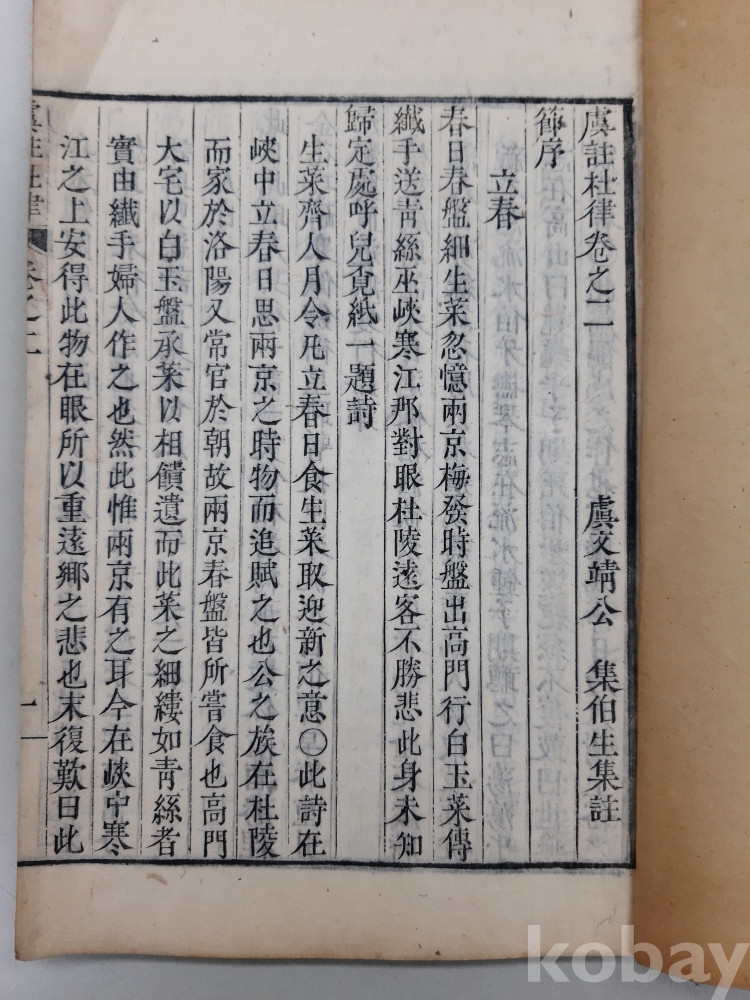 虞註杜律卷之二　虞文靖公　集伯生集註
節序
立春
春日春盤細生菜忽憶兩京梅發時盤出高門行白玉菜傳
纖手送青絲巫峽寒江那對眼杜陵遠客不勝悲此身未知
歸定處呼兒覓紙一題詩
生菜齊人月令凡立春日食生菜取迎新之意〇此詩在
峽中立春日思兩京之時物而追賦之也公之族在杜陵
而家於洛陽又常官於朝故兩京春盤皆所嘗食也高門
大宅以白玉盤承菜以相饋遺而此菜之細縷如青絲者
實由纖手婦人作之也然此惟兩京有之耳今在峽中寒
江之上安得此物在眼所以重遠鄉之悲也末復歎曰此
虞註杜律　卷之二　一
kobay